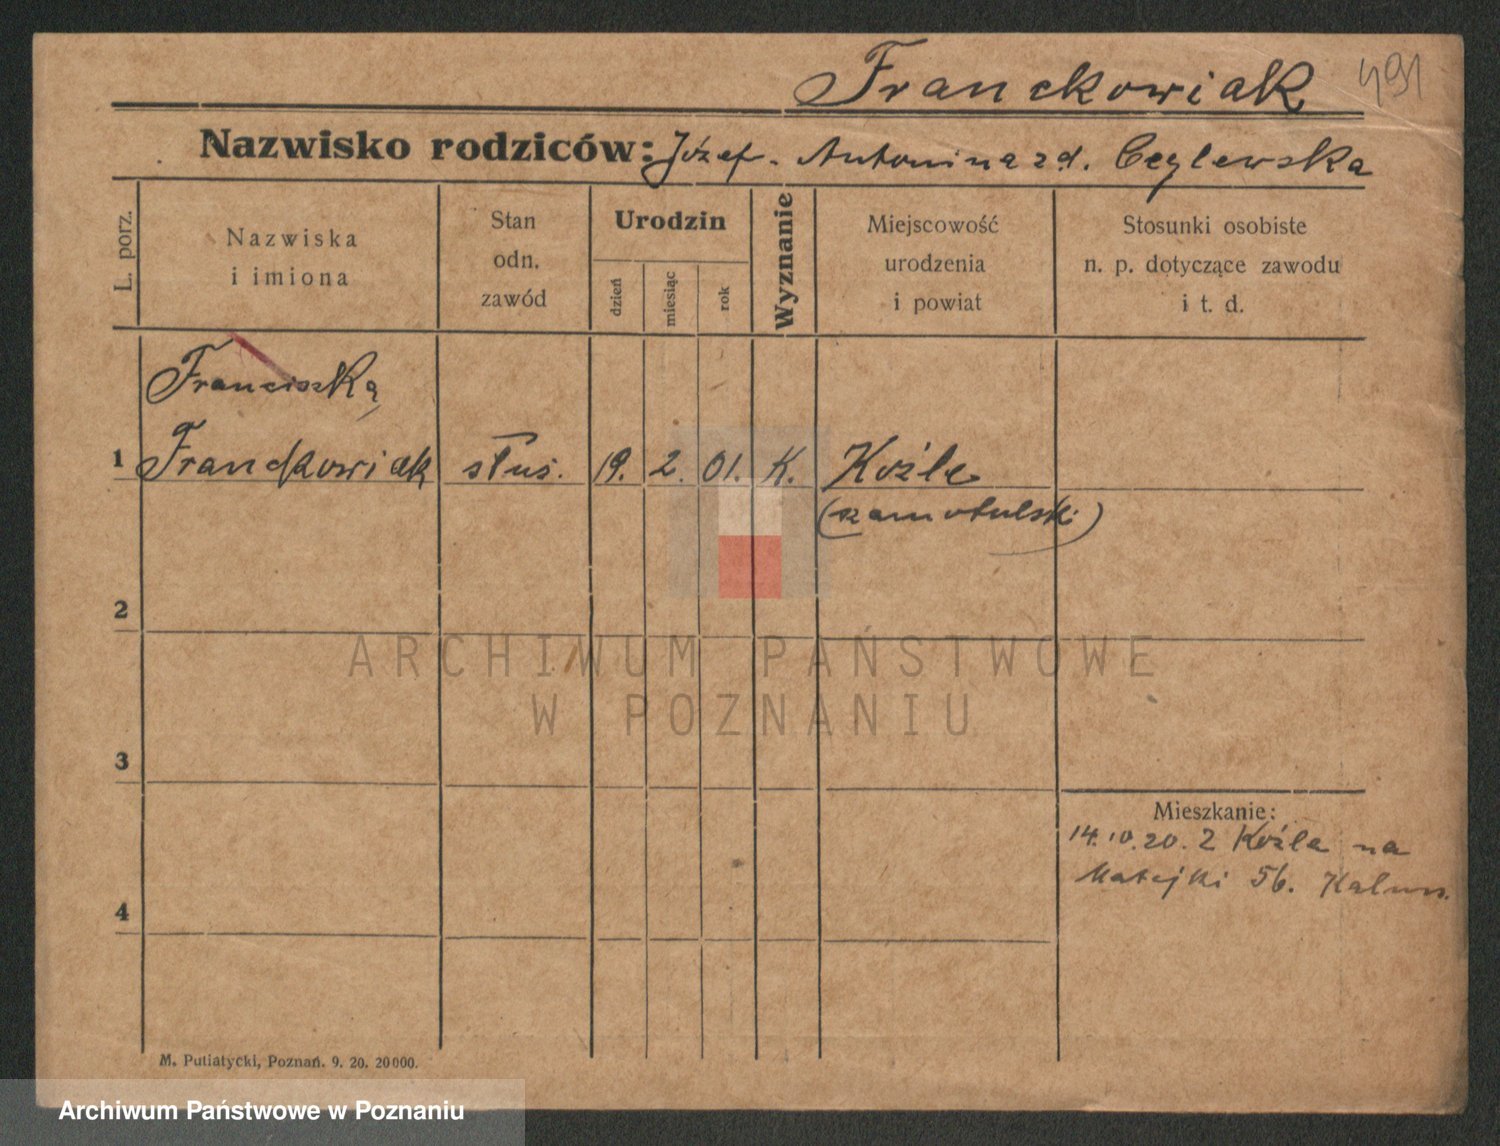 Franckowiak 491
Nazwisko rodziców: Józef - Antonina z d. Ceglewska
L. porz.
Nazwiska
i imiona
Stan
odn.
zawód
Urodzin
dzień
miesiąc
rok
Wyznanie
Miejscowość
urodzenia
i powiat
Stosunki osobiste
n. p. dotyczące zawodu
i t. d.
Franciszka
1 Franckowiak służ. 19. 2. 01. K. Koźle
(szamotulski)
2
ARCHIWUM PAŃSTWOWE
W POZNANIU
3
Mieszkanie:
14.10.20. z Koźla na
Matejki 56.
4
M. Putiatycki, Poznań. 9. 20. 20000.
Archiwum Państwowe w Poznaniu